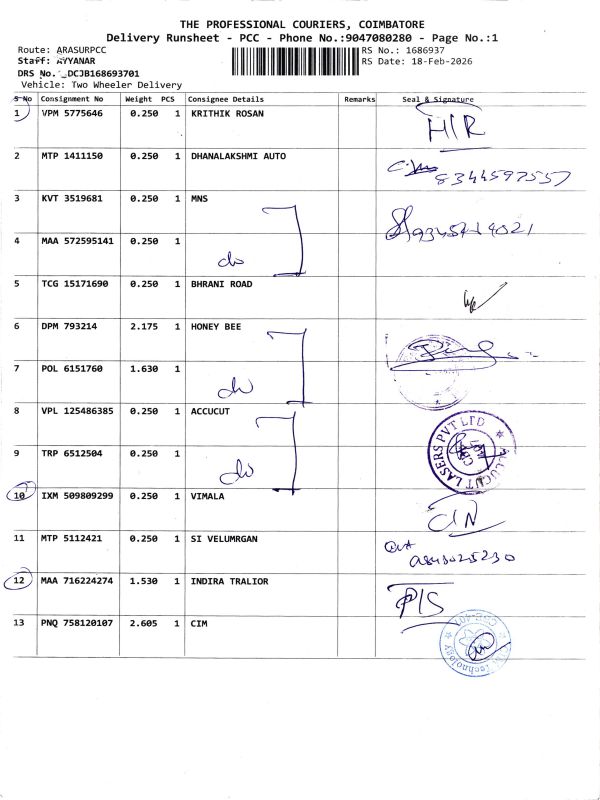 THE PROFESSIONAL COURIERS, COIMBATORE
Delivery Runsheet - PCC - Phone No.:9047080280 - Page No.:1
Route: ARASURPCC
RS No.: 1686937
Staff: AYYANAR
RS Date: 18-Feb-2026
DRS No. DCJB168693701
Vehicle: Two Wheeler Delivery
S No Consignment No Weight PCS Consignee Details Remarks Seal & Signature
1 VPM 5775646 0.250 1 KRITHIK ROSAN
2 MTP 1411150 0.250 1 DHANALAKSHMI AUTO
8344597557
3 KVT 3519681 0.250 1 MNS
4 MAA 572595141 0.250 1
do
5 TCG 15171690 0.250 1 BHRANI ROAD
6 DPM 793214 2.175 1 HONEY BEE
7 POL 6151760 1.630 1
do
8 VPL 125486385 0.250 1 ACCUCUT
ACCUCUT LASERS PVT LTD
9 TRP 6512504 0.250 1
do
10 IXM 509809299 0.250 1 VIMALA
11 MTP 5112421 0.250 1 SI VELUMRGAN
12 MAA 716224274 1.530 1 INDIRA TRALIOR
13 PNQ 758120107 2.605 1 CIM